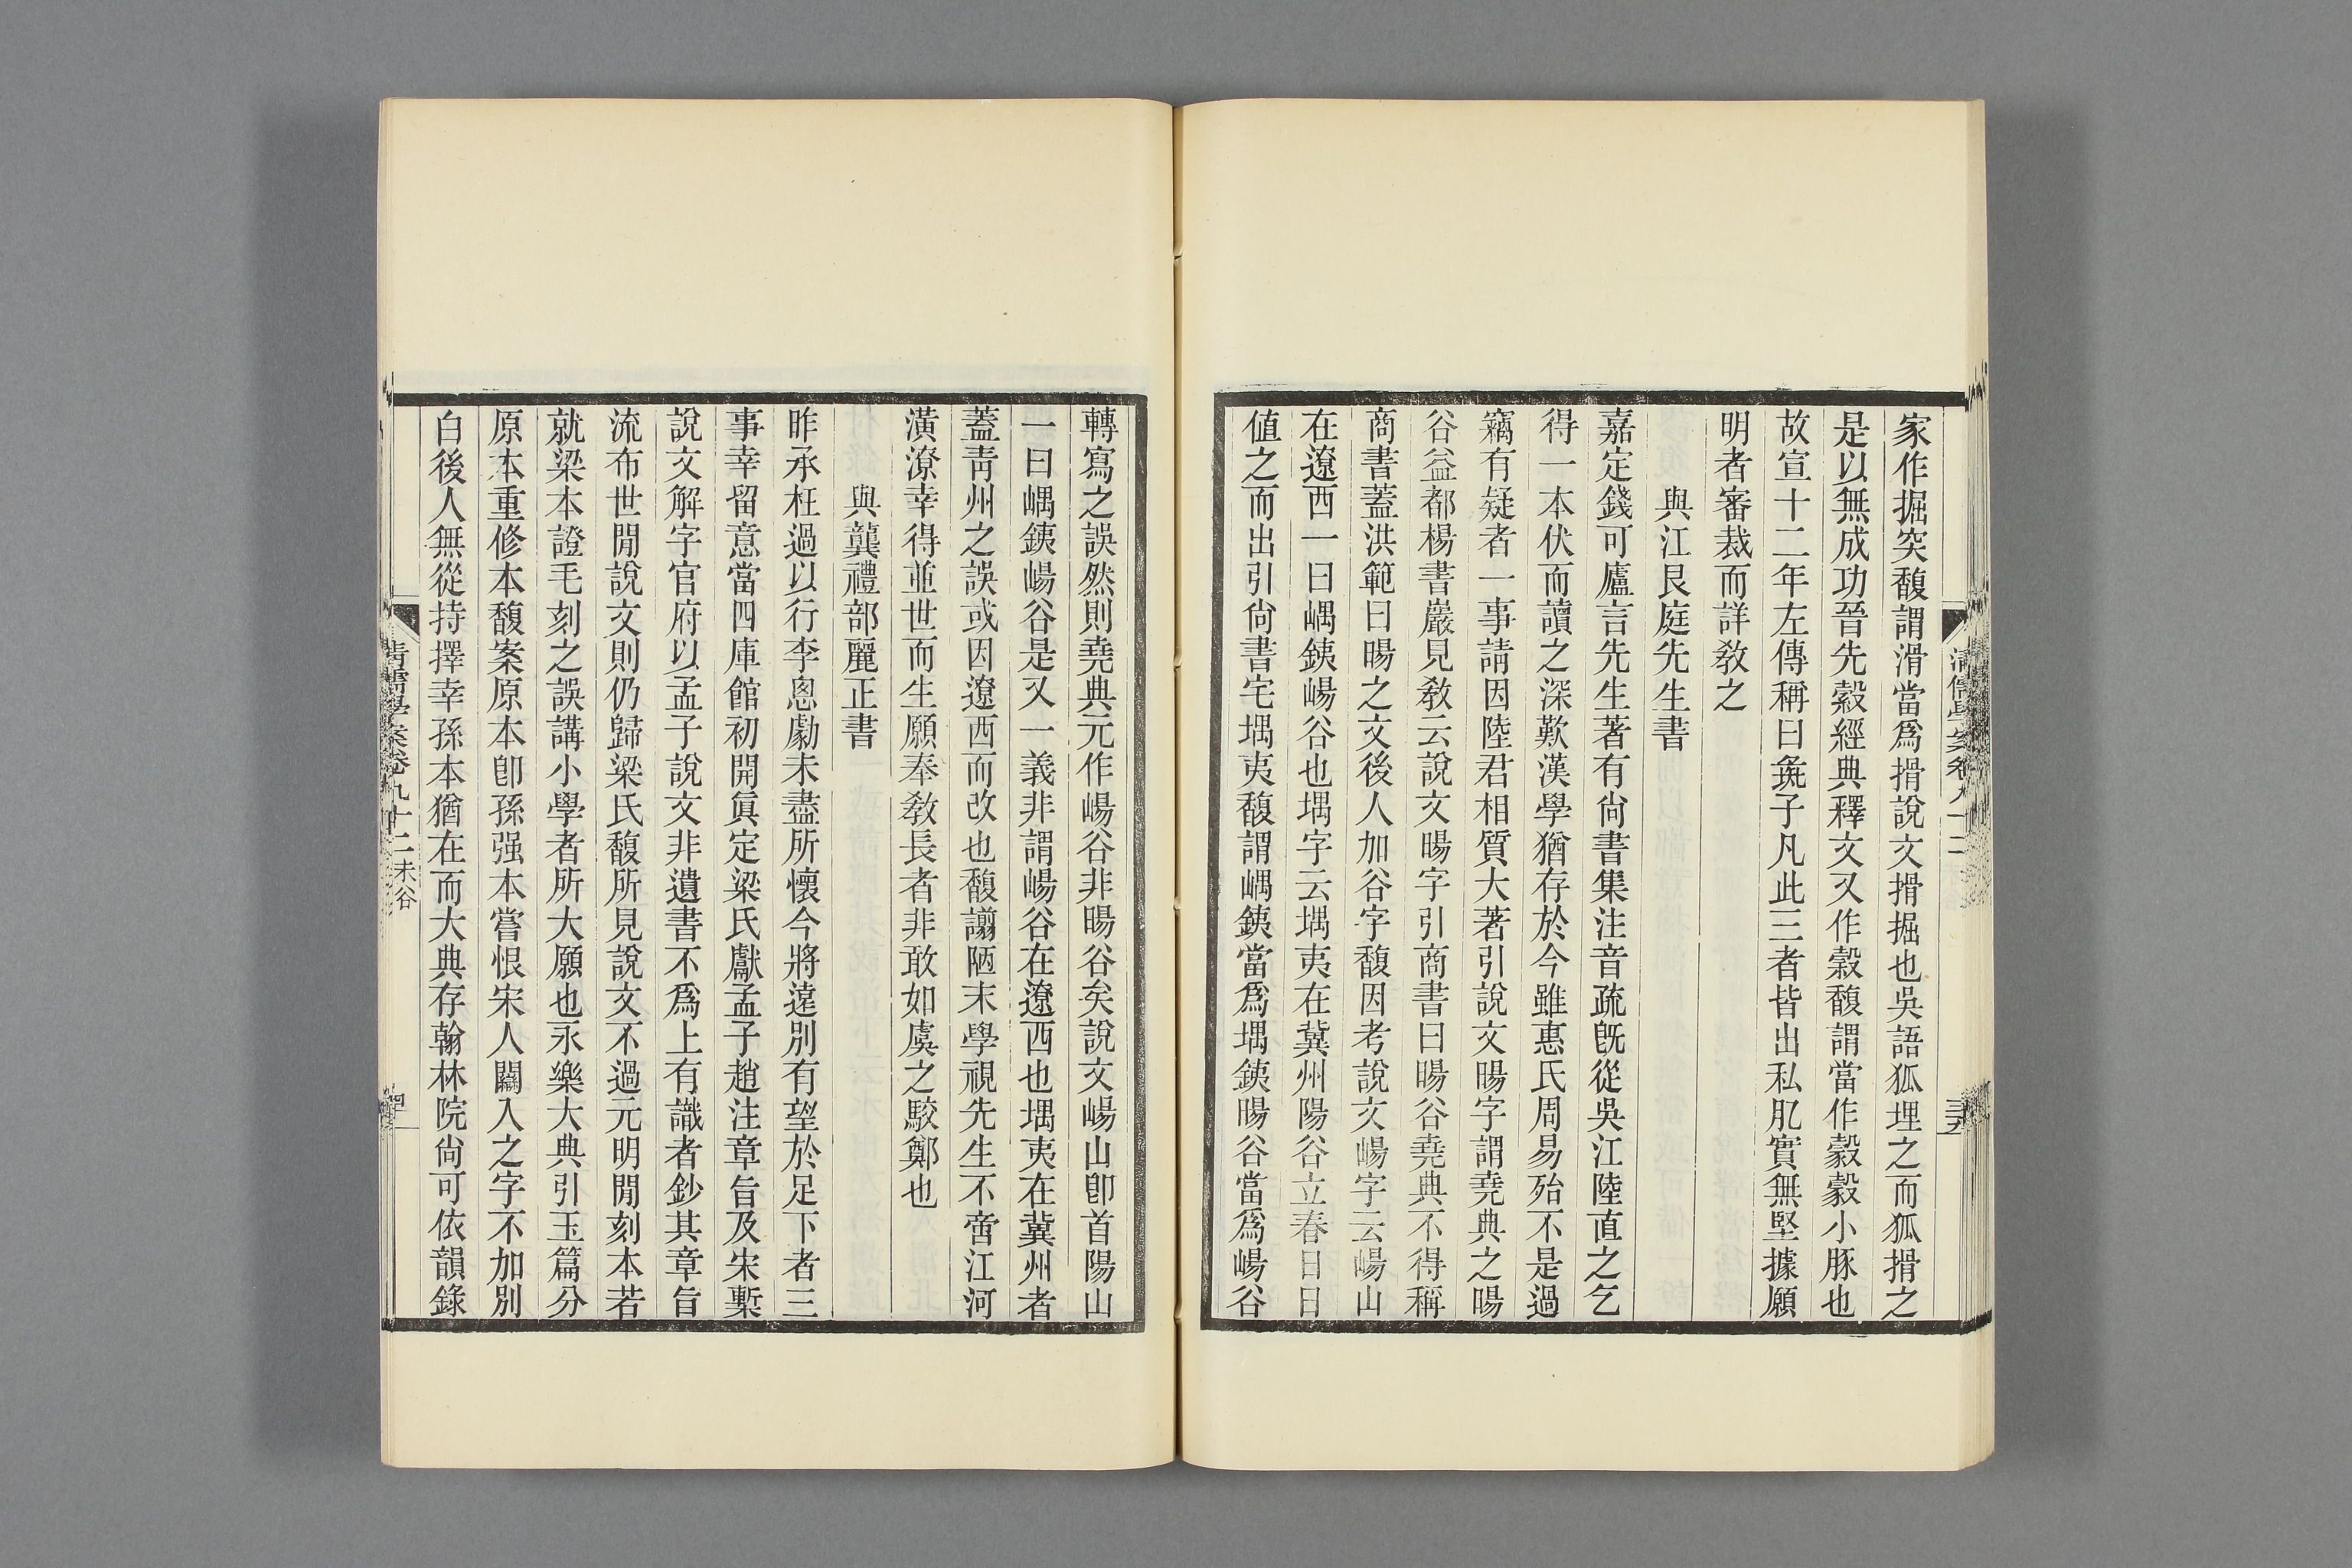 家作掘突馥謂滑當爲搰說文搰掘也吳語狐埋之而狐搰之
是以無成功晉先縠經典釋文又作縠馥謂當作㝅㝅小豚也
故宣十二年左傳稱曰彘子凡此三者皆出私肊實無堅據願
明者審裁而詳敎之
與江艮庭先生書
嘉定錢可廬言先生著有尙書集注音疏旣從吳江陸直之乞
得一本伏而讀之深歎漢學猶存於今雖惠氏周易殆不是過
竊有疑者一事請因陸君相質大著引說文暘字謂堯典之暘
谷益都楊書巖見敎云說文暘字引商書曰暘谷堯典不得稱
商書蓋洪範曰暘之文後人加谷字馥因考說文崵字云崵山
在遼西一曰嵎銕崵谷也堣字云堣夷在冀州陽谷立春日日
値之而出引尙書宅堣夷馥謂嵎銕當爲堣銕暘谷當爲崵谷
轉寫之誤然則堯典元作崵谷非暘谷矣說文崵山卽首陽山
一曰嵎銕崵谷是又一義非謂崵谷在遼西也堣夷在冀州者
蓋靑州之誤或因遼西而改也馥謭陋末學視先生不啻江河
潢潦幸得並世而生願奉敎長者非敢如虞之駮鄭也
與龔禮部麗正書
昨承枉過以行李悤劇未盡所懷今將遠別有望於足下者三
事幸留意當四庫館初開眞定梁氏獻孟子趙注章旨及宋槧
說文解字官府以孟子說文非遺書不爲上有識者鈔其章旨
流布世閒說文則仍歸梁氏馥所見說文不過元明閒刻本若
就梁本證毛刻之誤講小學者所大願也永樂大典引玉篇分
原本重修本馥案原本卽孫强本嘗恨宋人闌入之字不加別
白後人無從持擇幸孫本猶在而大典存翰林院尙可依韻錄
淸儒學案卷九十二 未谷